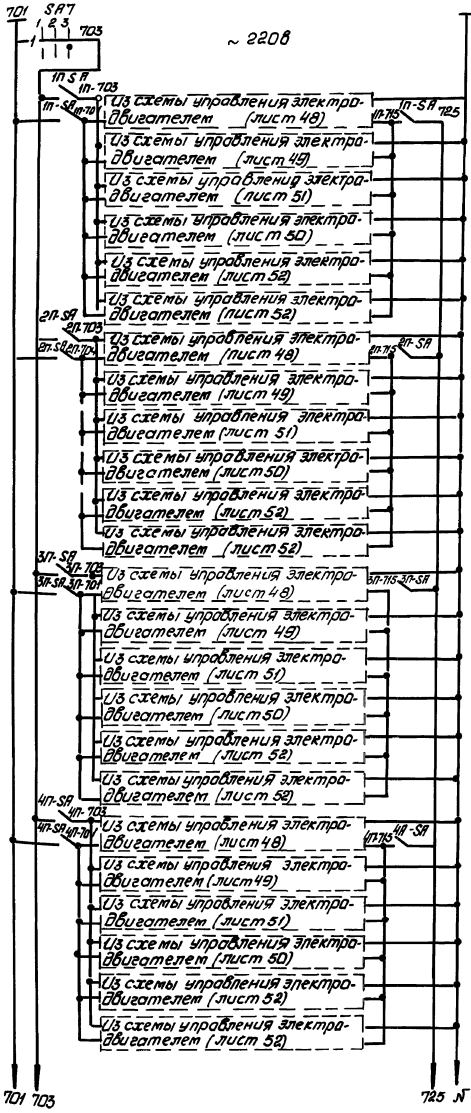 701 SA7
1 2 3 703
1
~ 220в
1П-SA 1П-703
1П-SA 1П-701
Из схемы управления электро-
двигателем (лист 48)
1П-715 1П-SA 725
Из схемы управления электро-
двигателем (лист 49)
Из схемы управления электро-
двигателем (лист 51)
Из схемы управления электро-
двигателем (лист 50)
Из схемы управления электро-
двигателем (лист 52)
Из схемы управления электро-
двигателем (лист 52)
2П-SA 2П-703
2П-SA 2П-704
Из схемы управления электро-
двигателем (лист 48)
2П-715 2П-SA
Из схемы управления электро-
двигателем (лист 49)
Из схемы управления электро-
двигателем (лист 51)
Из схемы управления электро-
двигателем (лист 50)
Из схемы управления электро-
двигателем (лист 52)
Из схемы управления электро-
двигателем (лист 52)
3П-SA 3П-703
3П-SA 3П-701
Из схемы управления электро-
двигателем (лист 48)
3П-715 3П-SA
Из схемы управления электро-
двигателем (лист 49)
Из схемы управления электро-
двигателем (лист 51)
Из схемы управления электро-
двигателем (лист 50)
Из схемы управления электро-
двигателем (лист 52)
Из схемы управления электро-
двигателем (лист 52)
4П-SA 4П-703
4П-SA 4П-701
Из схемы управления электро-
двигателем (лист 48)
4П-715 4П-SA
Из схемы управления электро-
двигателем (лист 49)
Из схемы управления электро-
двигателем (лист 51)
Из схемы управления электро-
двигателем (лист 50)
Из схемы управления электро-
двигателем (лист 52)
Из схемы управления электро-
двигателем (лист 52)
701 703 725 N